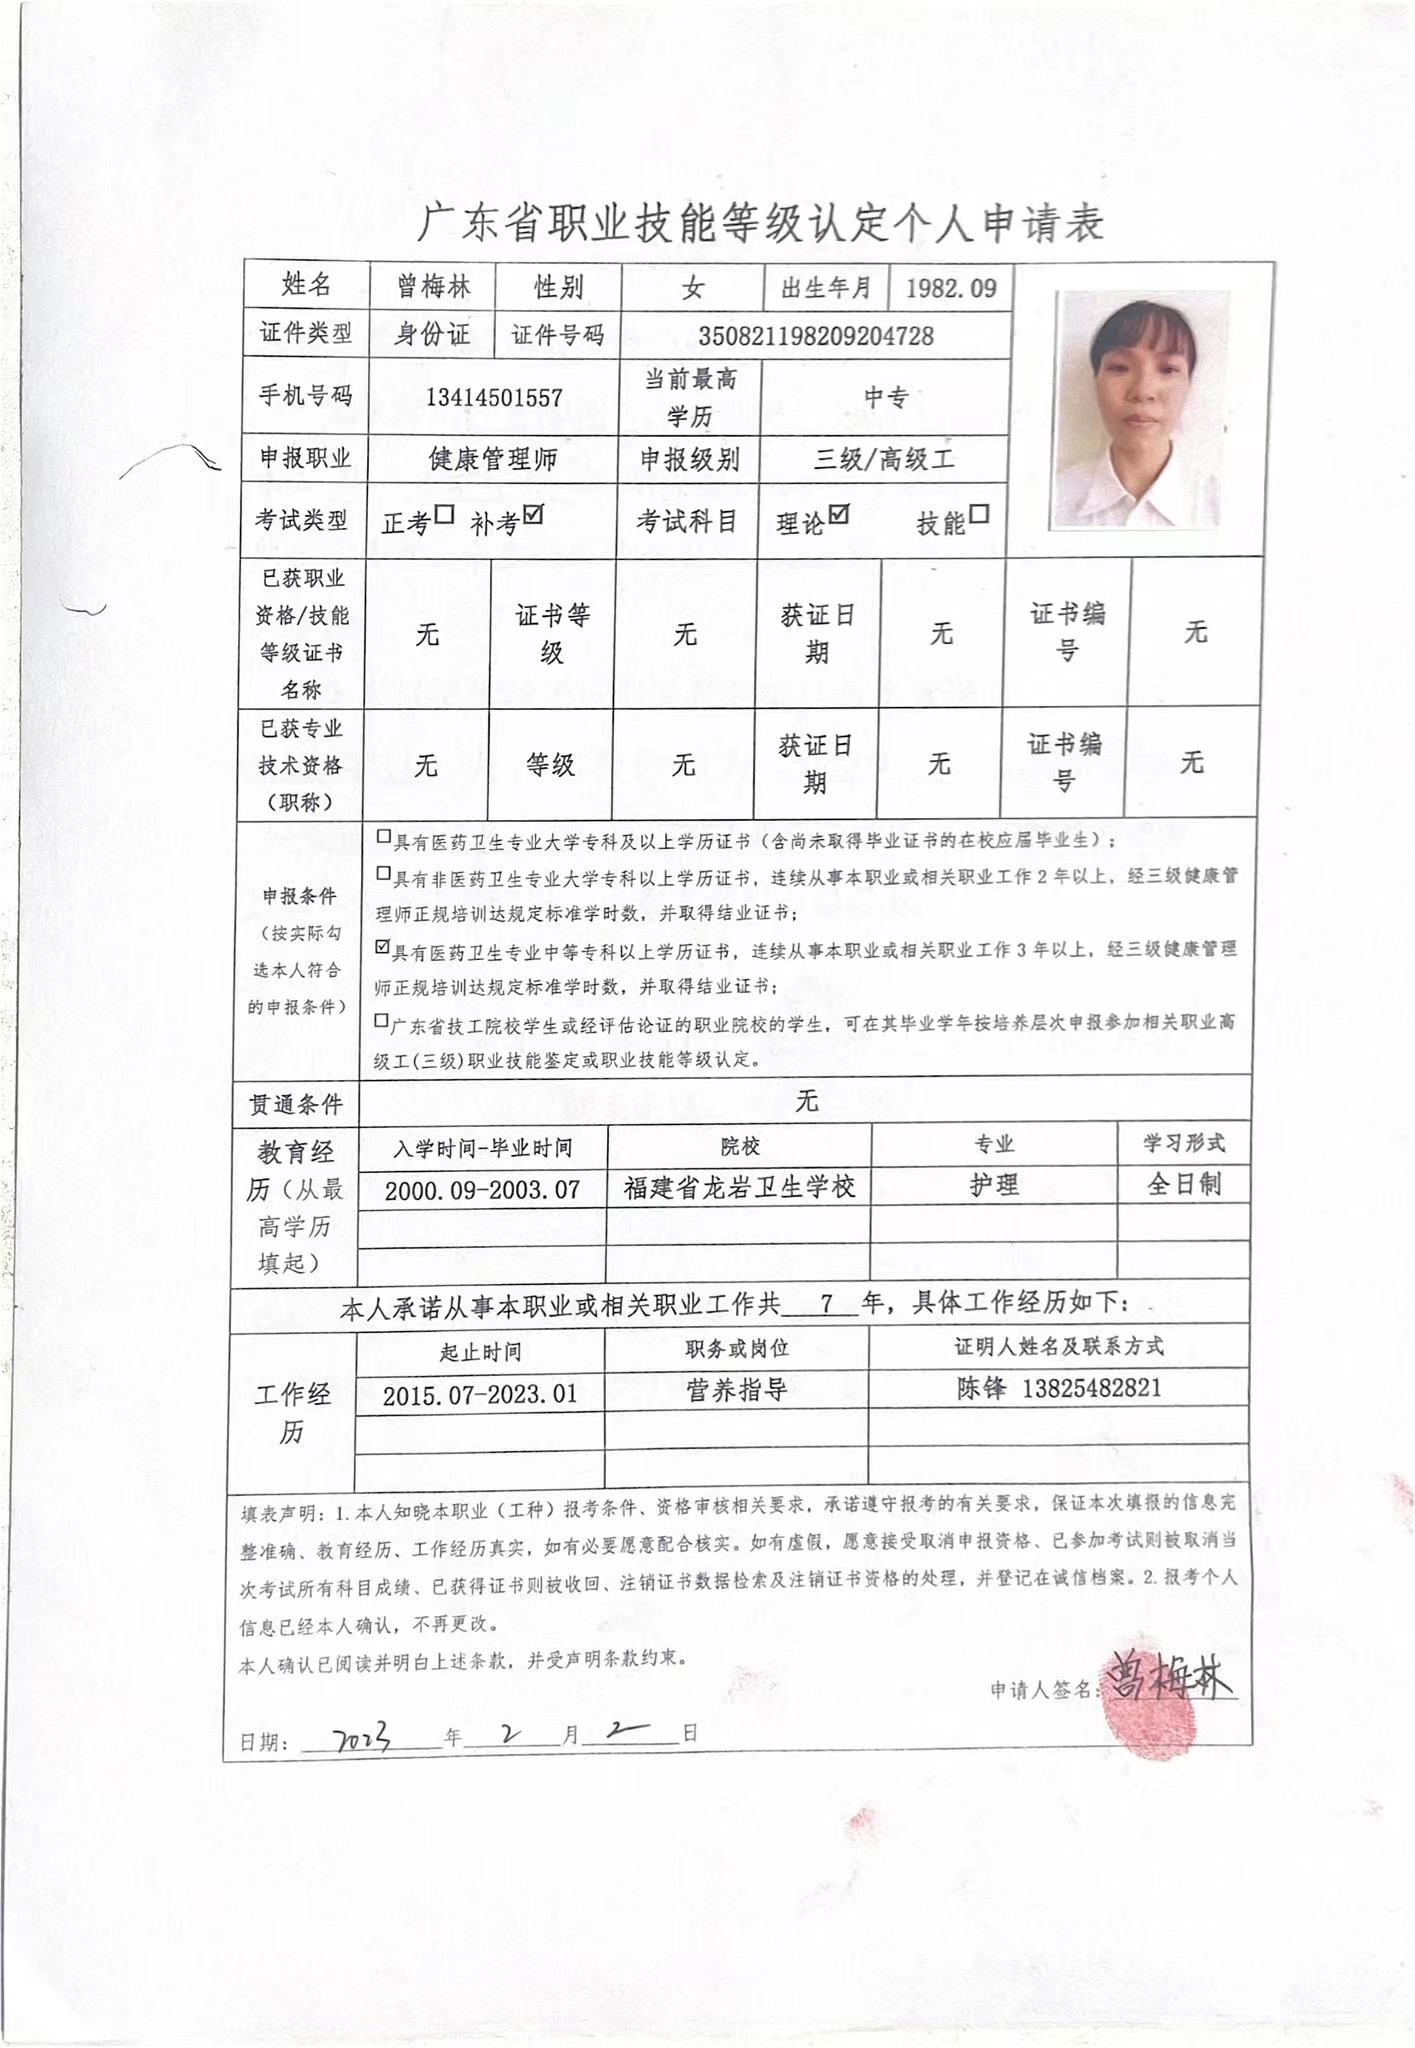 广东省职业技能等级认定个人申请表
姓名 曾梅林 性别 女 出生年月 1982.09
证件类型 身份证 证件号码 350821198209204728
手机号码 13414501557 当前最高学历 中专
申报职业 健康管理师 申报级别 三级/高级工
考试类型 正考□ 补考☑ 考试科目 理论☑ 技能□
已获职业资格/技能等级证书名称 无 证书等级 无 获证日期 无 证书编号 无
已获专业技术资格（职称） 无 等级 无 获证日期 无 证书编号 无
申报条件（按实际勾选本人符合的申报条件）
□具有医药卫生专业大学专科及以上学历证书（含尚未取得毕业证书的在校应届毕业生）；
□具有非医药卫生专业大学专科以上学历证书，连续从事本职业或相关职业工作2年以上，经三级健康管
理师正规培训达规定标准学时数，并取得结业证书；
☑具有医药卫生专业中等专科以上学历证书，连续从事本职业或相关职业工作3年以上，经三级健康管理
师正规培训达规定标准学时数，并取得结业证书；
□广东省技工院校学生或经评估论证的职业院校的学生，可在其毕业学年按培养层次申报参加相关职业高
级工(三级)职业技能鉴定或职业技能等级认定。
贯通条件 无
教育经历（从最高学历填起） 入学时间-毕业时间 院校 专业 学习形式
2000.09-2003.07 福建省龙岩卫生学校 护理 全日制
本人承诺从事本职业或相关职业工作共 7 年，具体工作经历如下：
工作经历 起止时间 职务或岗位 证明人姓名及联系方式
2015.07-2023.01 营养指导 陈锋 13825482821
填表声明：1.本人知晓本职业（工种）报考条件、资格审核相关要求，承诺遵守报考的有关要求，保证本次填报的信息完
整准确、教育经历、工作经历真实，如有必要愿意配合核实。如有虚假，愿意接受取消申报资格、已参加考试则被取消当
次考试所有科目成绩、已获得证书则被收回、注销证书数据检索及注销证书资格的处理，并登记在诚信档案。2.报考个人
信息已经本人确认，不再更改。
本人确认已阅读并明白上述条款，并受声明条款约束。
申请人签名：曾梅林
日期： 2023 年 2 月 2 日